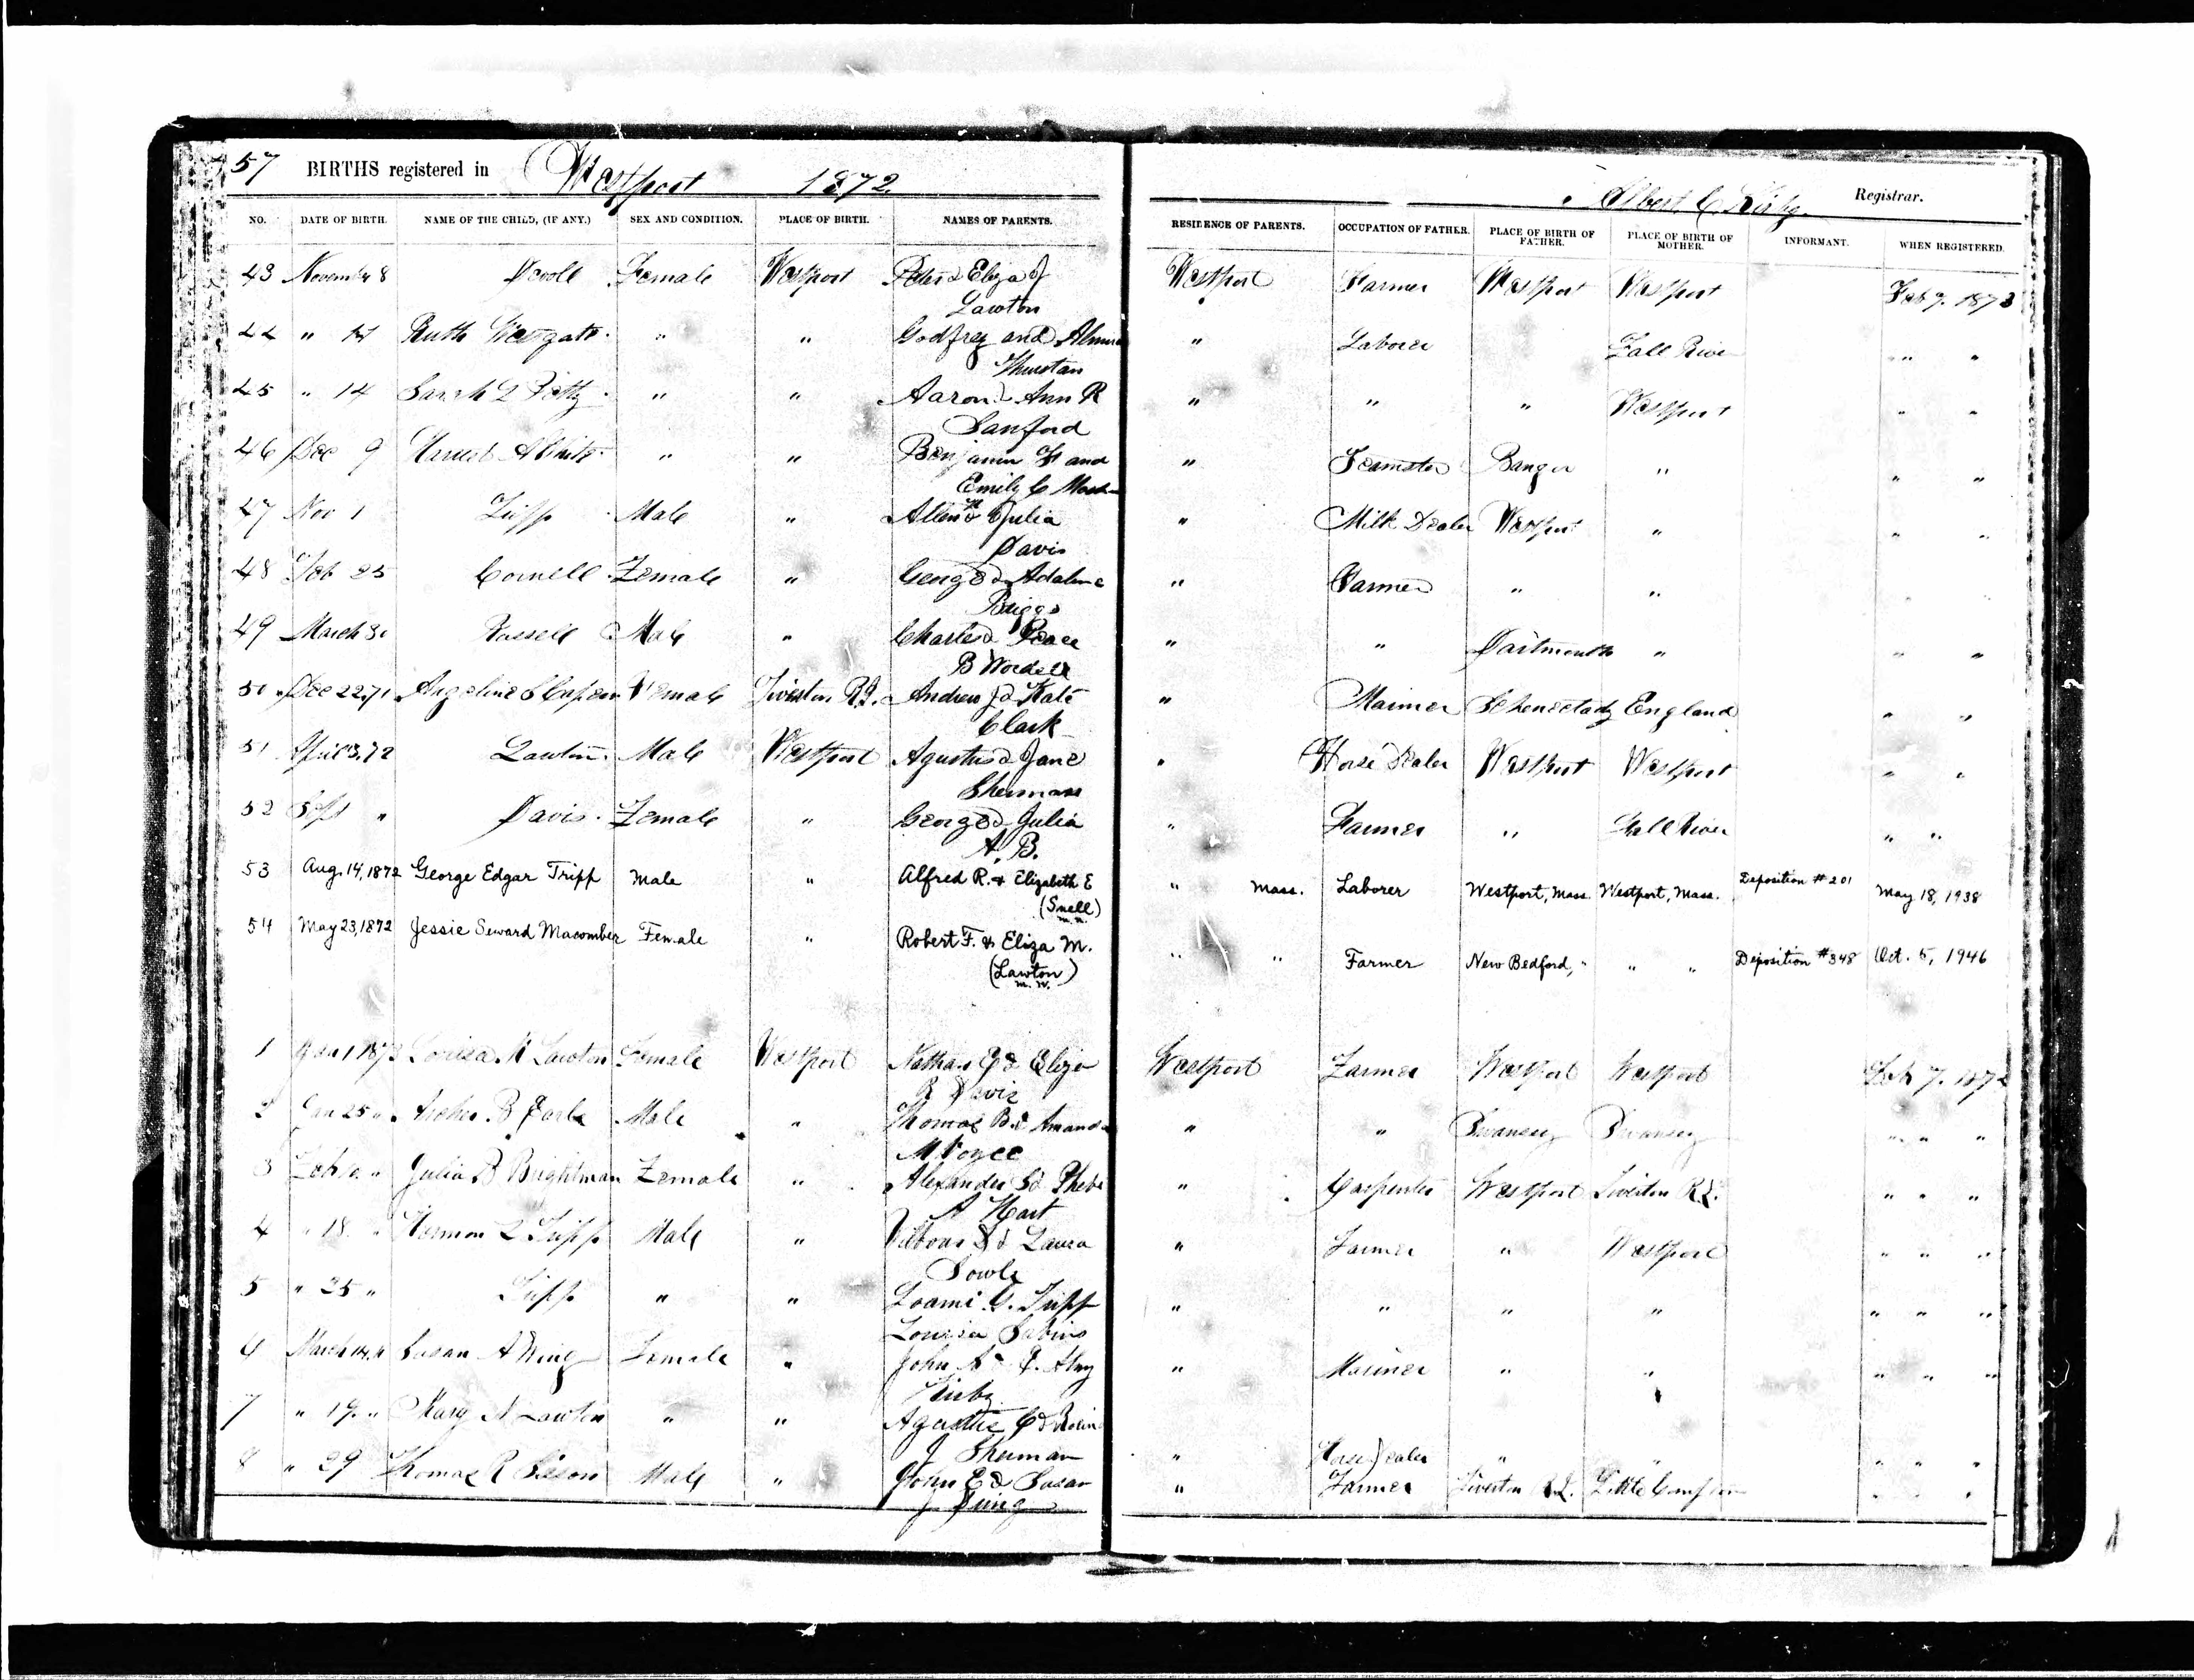 57 BIRTHS registered in Westport 1872
Albert C. Kirby Registrar.
NO. DATE OF BIRTH. NAME OF THE CHILD, (IF ANY.) SEX AND CONDITION. PLACE OF BIRTH. NAMES OF PARENTS. RESIDENCE OF PARENTS. OCCUPATION OF FATHER. PLACE OF BIRTH OF FATHER. PLACE OF BIRTH OF MOTHER. INFORMANT. WHEN REGISTERED.
43 November 8 Devoll Female Westport Peter & Eliza J Westport Farmer Westport Westport Feb 7. 1873
Lawton
44 " 14 Ruth Westgate " " Godfrey and Almira " Laborer Fall River " "
Thurstan
45 " 14 Sarah L Petty " " Aaron & Ann R " " " Westport " "
Sanford
46 Dec 9 A White " " Benjamin F and " Teamster Bangor " " "
Emily C
47 Nov 1 Tripp Male " Allen & Julia " Milk Dealer Westport " " "
Davis
48 Feb 25 Cornell Female " George & Adaline " Farmer " " "
Briggs
49 March Russell Male " Charles & Peace " " Dartmouth " " "
B Wordell
50 Dec 22, 71 Angeline S Female Tiverton R.I. Andrew J & Kate " Mariner Schenectady England " "
Clark
51 April 3, 72 Lawton Male Westport Agustus & Jane " Horse Dealer Westport Westport " "
Sherman
52 Sept " Davis Female " George & Julia " Farmer " Fall River " "
A. B.
53 Aug. 14, 1872 George Edgar Tripp Male " Alfred R. & Elizabeth E " Mass. Laborer Westport, Mass. Westport, Mass. Deposition #201 May 18, 1938
(Snell)
m.n.
54 May 23, 1872 Jessie Seward Macomber Female " Robert F. & Eliza M. " " Farmer New Bedford, " " " Deposition #348 Oct. 5, 1946
(Lawton)
m.n.
1 Jan 1 1873 Louisa M Lawton Female Westport Nathan & Eliza Westport Farmer Westport Westport Feb 7. 187
R Davis
2 Jan 25 " B Earle Male " Thomas B & Amanda " " Swansey Swansey " " "
M
3 Feb " Julia B Brightman Female " Alexander S & Phebe " Carpenter Westport Tiverton R.I. " " "
A Hart
4 " 18 " Herman L Tripp Male " & Laura " Farmer " Westport " " "
Sowle
5 " 25 " Tripp " " Loami G. Tripp " " " " " " "
Louisa Sabins
6 March 14 " Susan A King Female " John & Almy " Mariner " " " " "
Kirby
7 " 19 " Mary A Lawton " " Agustus C & " Horse Dealer " " " " "
J Sherman
8 " 29 Thomas R Sisson Male " John E & Susan " Farmer Tiverton R.I. Little Compton " " "
J